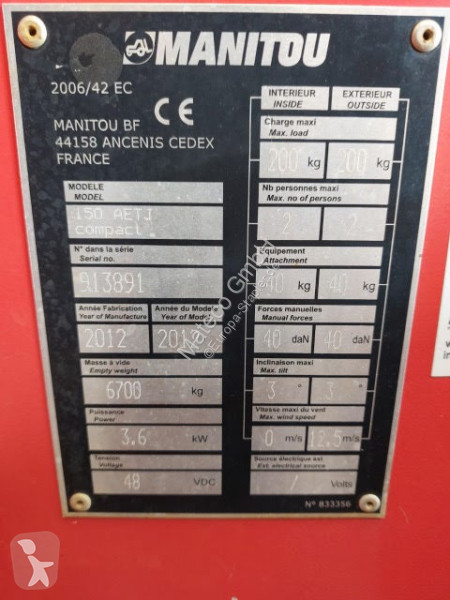 MANITOU
2006/42 EC
CE
MANITOU BF
44158 ANCENIS CEDEX
FRANCE
MODELE
MODEL
150 AETJ
compact
N° dans la série
Serial no.
913891
Année Fabrication
Year of Manufacture
Année du Modèle
Year of Model
2012
Masse à vide
Empty weight
6700 kg
Puissance
Power
3.6 kW
Tension
Voltage
48 VDC
INTERIEUR
INSIDE
EXTERIEUR
OUTSIDE
Charge maxi
Max. load
200 kg 200 kg
Nb personnes maxi
Max. no of persons
2 2
Equipement
Attachment
40 kg 40 kg
Forces manuelles
Manual forces
40 daN 40 daN
Inclinaison maxi
Max. tilt
3 ° 3 °
Vitesse maxi du vent
Max. wind speed
0 m/s 12.5 m/s
Source électrique ext
Ext. electrical source
/ Volts
N° 833356
Mateco GmbH